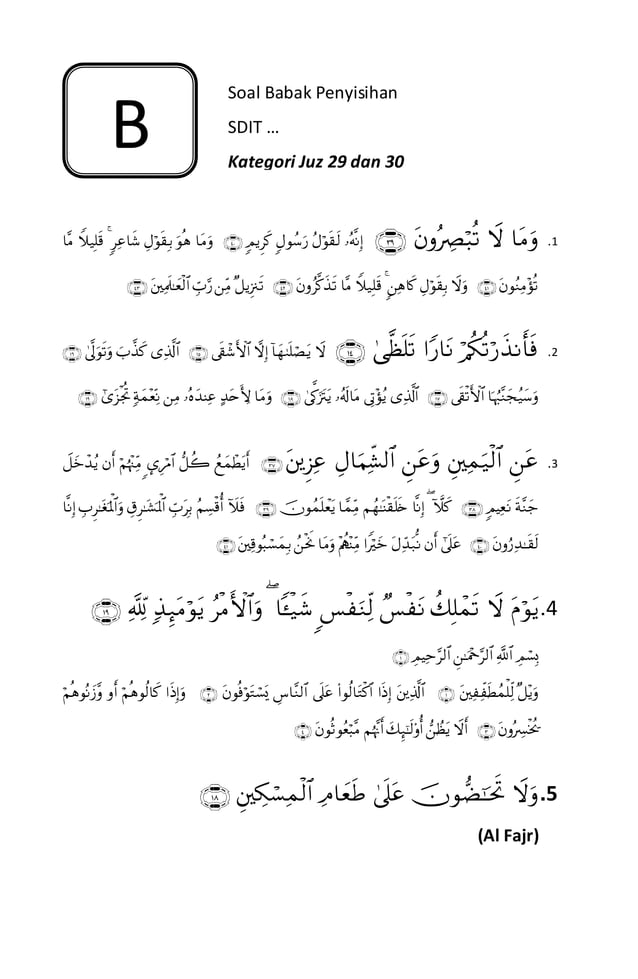 B
Soal Babak Penyisihan
SDIT ...
Kategori Juz 29 dan 30
1. وَمَا لَا تُبْصِرُونَ ﴿٣٩﴾ إِنَّهُۥ لَقَوْلُ رَسُولٍ كَرِيمٍ ﴿٤٠﴾ وَمَا هُوَ بِقَوْلِ شَاعِرٍ ۚ قَلِيلًا مَّا
تُؤْمِنُونَ ﴿٤١﴾ وَلَا بِقَوْلِ كَاهِنٍ ۚ قَلِيلًا مَّا تَذَكَّرُونَ ﴿٤٢﴾ تَنزِيلٌ مِّن رَّبِّ ٱلْعَـٰلَمِينَ ﴿٤٣﴾
2. فَأَنذَرْتُكُمْ نَارًا تَلَظَّىٰ ﴿١٤﴾ لَا يَصْلَىٰهَآ إِلَّا ٱلْأَشْقَى ﴿١٥﴾ ٱلَّذِى كَذَّبَ وَتَوَلَّىٰ ﴿١٦﴾
وَسَيُجَنَّبُهَا ٱلْأَتْقَى ﴿١٧﴾ ٱلَّذِى يُؤْتِى مَالَهُۥ يَتَزَكَّىٰ ﴿١٨﴾ وَمَا لِأَحَدٍ عِندَهُۥ مِن نِّعْمَةٍ تُجْزَىٰٓ ﴿١٩﴾
3. عَنِ ٱلْيَمِينِ وَعَنِ ٱلشِّمَالِ عِزِينَ ﴿٣٧﴾ أَيَطْمَعُ كُلُّ ٱمْرِئٍ مِّنْهُمْ أَن يُدْخَلَ
جَنَّةَ نَعِيمٍ ﴿٣٨﴾ كَلَّآ ۖ إِنَّا خَلَقْنَـٰهُم مِّمَّا يَعْلَمُونَ ﴿٣٩﴾ فَلَآ أُقْسِمُ بِرَبِّ ٱلْمَشَـٰرِقِ وَٱلْمَغَـٰرِبِ إِنَّا
لَقَـٰدِرُونَ ﴿٤٠﴾ عَلَىٰٓ أَن نُّبَدِّلَ خَيْرًا مِّنْهُمْ وَمَا نَحْنُ بِمَسْبُوقِينَ ﴿٤١﴾
4. يَوْمَ لَا تَمْلِكُ نَفْسٌ لِّنَفْسٍ شَيْـًٔا ۖ وَٱلْأَمْرُ يَوْمَئِذٍ لِّلَّهِ ﴿١٩﴾
بِسْمِ ٱللَّهِ ٱلرَّحْمَـٰنِ ٱلرَّحِيمِ ﴿١﴾
وَيْلٌ لِّلْمُطَفِّفِينَ ﴿١﴾ ٱلَّذِينَ إِذَا ٱكْتَالُوا۟ عَلَى ٱلنَّاسِ يَسْتَوْفُونَ ﴿٢﴾ وَإِذَا كَالُوهُمْ أَو وَّزَنُوهُمْ
يُخْسِرُونَ ﴿٣﴾ أَلَا يَظُنُّ أُو۟لَـٰٓئِكَ أَنَّهُم مَّبْعُوثُونَ ﴿٤﴾
5. وَلَا تَحَـٰٓضُّونَ عَلَىٰ طَعَامِ ٱلْمِسْكِينِ ﴿١٨﴾
(Al Fajr)